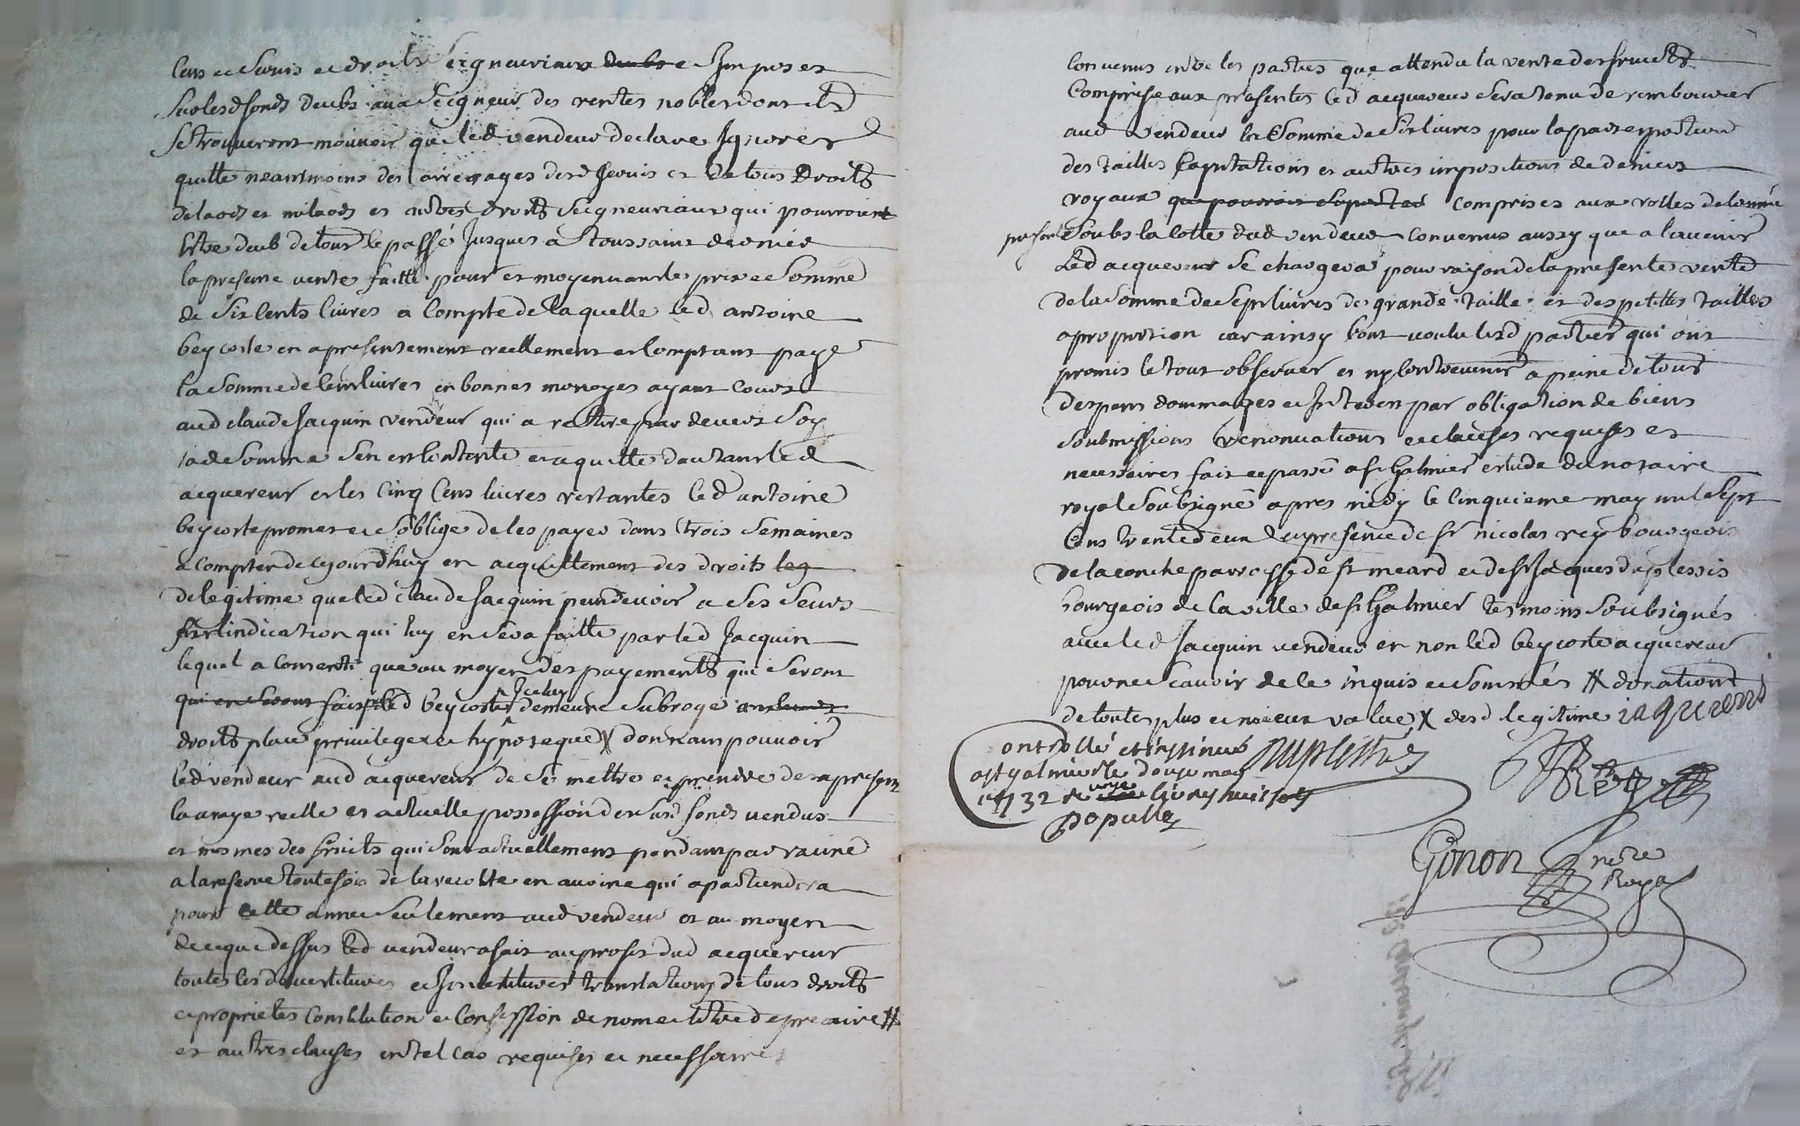 Cens et servis et droits seigneuriaux deubs et Imposes
sur lesd fonds deubs aux seigneurs des rentes nobles dont ils
se trouveront mouvoir que led vendeur declare Ignorer
quitte neanmoins des arrerages desd servis et de tous droits
de laods et milaods et autres droits seigneuriaux qui pourroient
estre deub de tout le passé Jusques a toussaint dernier
la presente vente faitte pour et moyennant le prix et somme
de six cents livres a compte de laquelle led antoine
beycoste en a presentement reellement et comptant payé
la somme de cent livres en bonnes monoyes ayant cours
aud claude Jacquin vendeur qui a retiré par devers soy
lad somme s'en est contenté et a quitté d'autant led
acquereur et les cinq cens livres restantes led antoine
beycoste promet et s'oblige de les payer dans trois semaines
a compter de cejourd'huy en acquittement des droits leg
de legitime que led claude Jacquin peut devoir a ses seurs
sur lindication qui luy en sera faitte par led Jacquin
lequel a consenti que au moyen des payements qui seront
qui en seront faits led beycoste Iceluy demeure subrogé aux lieux
droits place privileges et hypoteque X donnant pouvoir
led vendeur aud acquereur de se mettre et prendre des a present
la vraye reelle et actuelle possession desusd fonds vendus
et mesmes des fruits qui sont actuellement pendants par racine
a la reserve toutesfois de la recolte en avoine qui apartiendra
pour cette année seulement aud vendeur et au moyen
de ce que dessus led vendeur a fait au profit dud acquereur
toutes les devestitures et Investitures translations de tous droits
et proprietes constitution et confession de nom et titre de precaire #
et autres clauses en tel cas requises et necessaires
Convenus entre les parties que attendu la vente des fruicts
Comprise aux presentes led acquereur sera tenu de rembourser
aud vendeur la somme de six livres pour la part et portion
des tailles capitations et autres impositions de deniers
royaux que pourroit suporter comprises aux rolles de lannée
presente soubs la cotte dud vendeur convenus aussy que a lavenir
Led acquereur se chargera pour raison de la presente vente
de la somme de sept livres de grande taille et des petittes tailles
a proportion car ainsy lont voulu lesd parties qui ont
promis le tout observer et ny contrevenir a peine de tous
despens dommages et Interets par obligation de biens
soubmissions renonciations et clauses requises et
necessaires fait et passé a st Galmier estude du notaire
royal soubsigné apres midy le cinquieme may mil sept
Cens trente deux en presence de sr nicolas rey bourgeois
de la conche parroisse de st meard et de sr Jacques duplessis
bourgeois de la ville de st Galmier tesmoins soubsignés
avec led Jacquin vendeur et non led beycoste acquereur
pour ne scavoir de ce enquis et sommés # donation
de toutes plus et mieux value X desd legitime iaquein
Controllé et insinué duplessis
a st galmier le douze may Rey
1732 Reçu livres huit sols
populle
Gonon nore
Royal